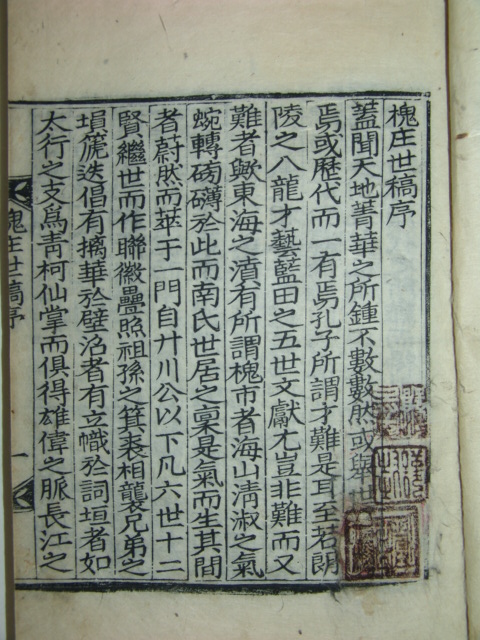 槐庄世稿序
蓋聞天地菁華之所鍾不數數然或舉世
焉或歷代而一有焉孔子所謂才難是耳至若朗
陵之八龍才藝藍田之五世文獻尤豈非難而又
難者歟東海之濱有所謂槐市者海山淸淑之氣
蜿轉磅礴於此而南氏世居之稟是氣而生其間
者蔚然而萃于一門自廾川公以下凡六世十二
賢繼世而作聯徽疊照祖孫之箕裘相襲兄弟之
塤篪迭倡有摛華於壁沼者有立幟於詞垣者如
太行之支爲靑柯仙掌而俱得雄偉之脈長江之
槐庄世稿序
一